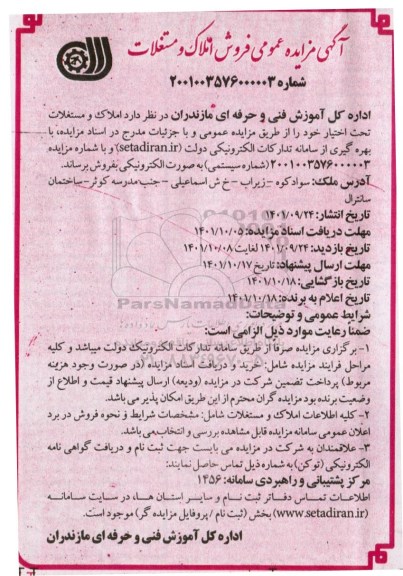 آگهی مزایده عمومی فروش املاک و مستغلات
شماره ۲۰۰۱۰۰۳۵۷۶۰۰۰۰۰۳
اداره کل آموزش فنی و حرفه ای مازندران در نظر دارد املاک و مستغلات
تحت اختیار خود را از طریق مزایده عمومی و با جزئیات مدرج در اسناد مزایده، با
بهره گیری از سامانه تدارکات الکترونیکی دولت (setadiran.ir) و با شماره مزایده
۲۰۰۱۰۰۳۵۷۶۰۰۰۰۰۳ (شماره سیستمی) به صورت الکترونیکی بفروش برساند.
آدرس ملک: سوادکوه - زیراب - خ ش اسماعیلی - جنب مدرسه کوثر - ساختمان
سانترال
تاریخ انتشار: ۱۴۰۱/۰۹/۲۴
مهلت دریافت اسناد مزایده: ۱۴۰۱/۱۰/۰۵
تاریخ بازدید: ۱۴۰۱/۰۹/۲۴ لغایت ۱۴۰۱/۱۰/۰۸
مهلت ارسال پیشنهاد: تاریخ ۱۴۰۱/۱۰/۱۷
تاریخ بازگشایی: ۱۴۰۱/۱۰/۱۸
تاریخ اعلام به برنده: ۱۴۰۱/۱۰/۱۸
ParsNamadData
شرایط عمومی و توضیحات:
ضمنا رعایت موارد ذیل الزامی است:
۱- برگزاری مزایده صرفاً از طریق سامانه تدارکات الکترونیک دولت میباشد و کلیه
مراحل فرایند مزایده شامل: خرید و دریافت اسناد مزایده (در صورت وجود هزینه
مربوط) پرداخت تضمین شرکت در مزایده (ودیعه) ارسال پیشنهاد قیمت و اطلاع از
وضعیت برنده بود مزایده گران محترم از این طریق امکان پذیر می باشد.
۲- کلیه اطلاعات املاک و مستغلات شامل: مشخصات شرایط و نحوه فروش در برد
اعلان عمومی سامانه مزایده قابل مشاهده بررسی و انتخاب می باشد.
۳- علاقمندان به شرکت در مزایده می بایست جهت ثبت نام و دریافت گواهی نامه
الکترونیکی (توکن) به شماره ذیل تماس حاصل نمایند:
مرکز پشتیبانی و راهبردی سامانه: ۱۴۵۶
اطلاعات تماس دفاتر ثبت نام و سایر استان ها، در سایت سامانه
(www.setadiran.ir) بخش (ثبت نام / پروفایل مزایده گر) موجود است.
اداره کل آموزش فنی و حرفه ای مازندران